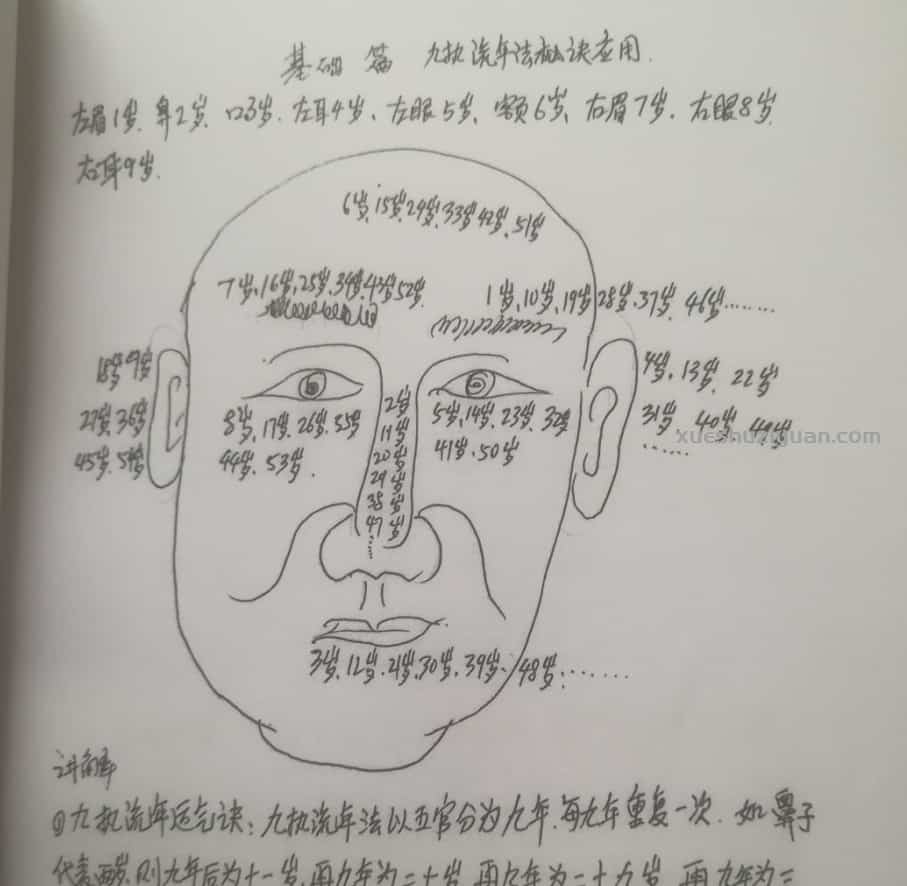 基础篇 九执流年法秘诀应用.
左眉1岁.鼻2岁、口3岁.左耳4岁、左眼5岁、额6岁、右眉7岁.右眼8岁.
右耳9岁.
6岁、15岁、24岁、33岁、42岁、51岁
7岁、16岁、25岁、34岁、43岁、52岁
1岁、10岁、19岁、28岁、37岁、46岁……
18岁 9岁
27岁、36岁
45岁、54岁
4岁、13岁、22岁
31岁、40岁、49岁
……
8岁、17岁、26岁、35岁
44岁、53岁.
2岁
11岁
20岁
29岁
38岁
47岁
……
5岁、14岁、23岁、32岁
41岁、50岁
xueshuziyuan.com
3岁、12岁、21岁、30岁、39岁、48岁……
讲解
①九执流年运气诀:九执流年法以五官分为九年.每九年重复一次.如鼻子
代表两岁.则九年后为十一岁,再九年为二十岁,再九年为二十九岁,再九年为三